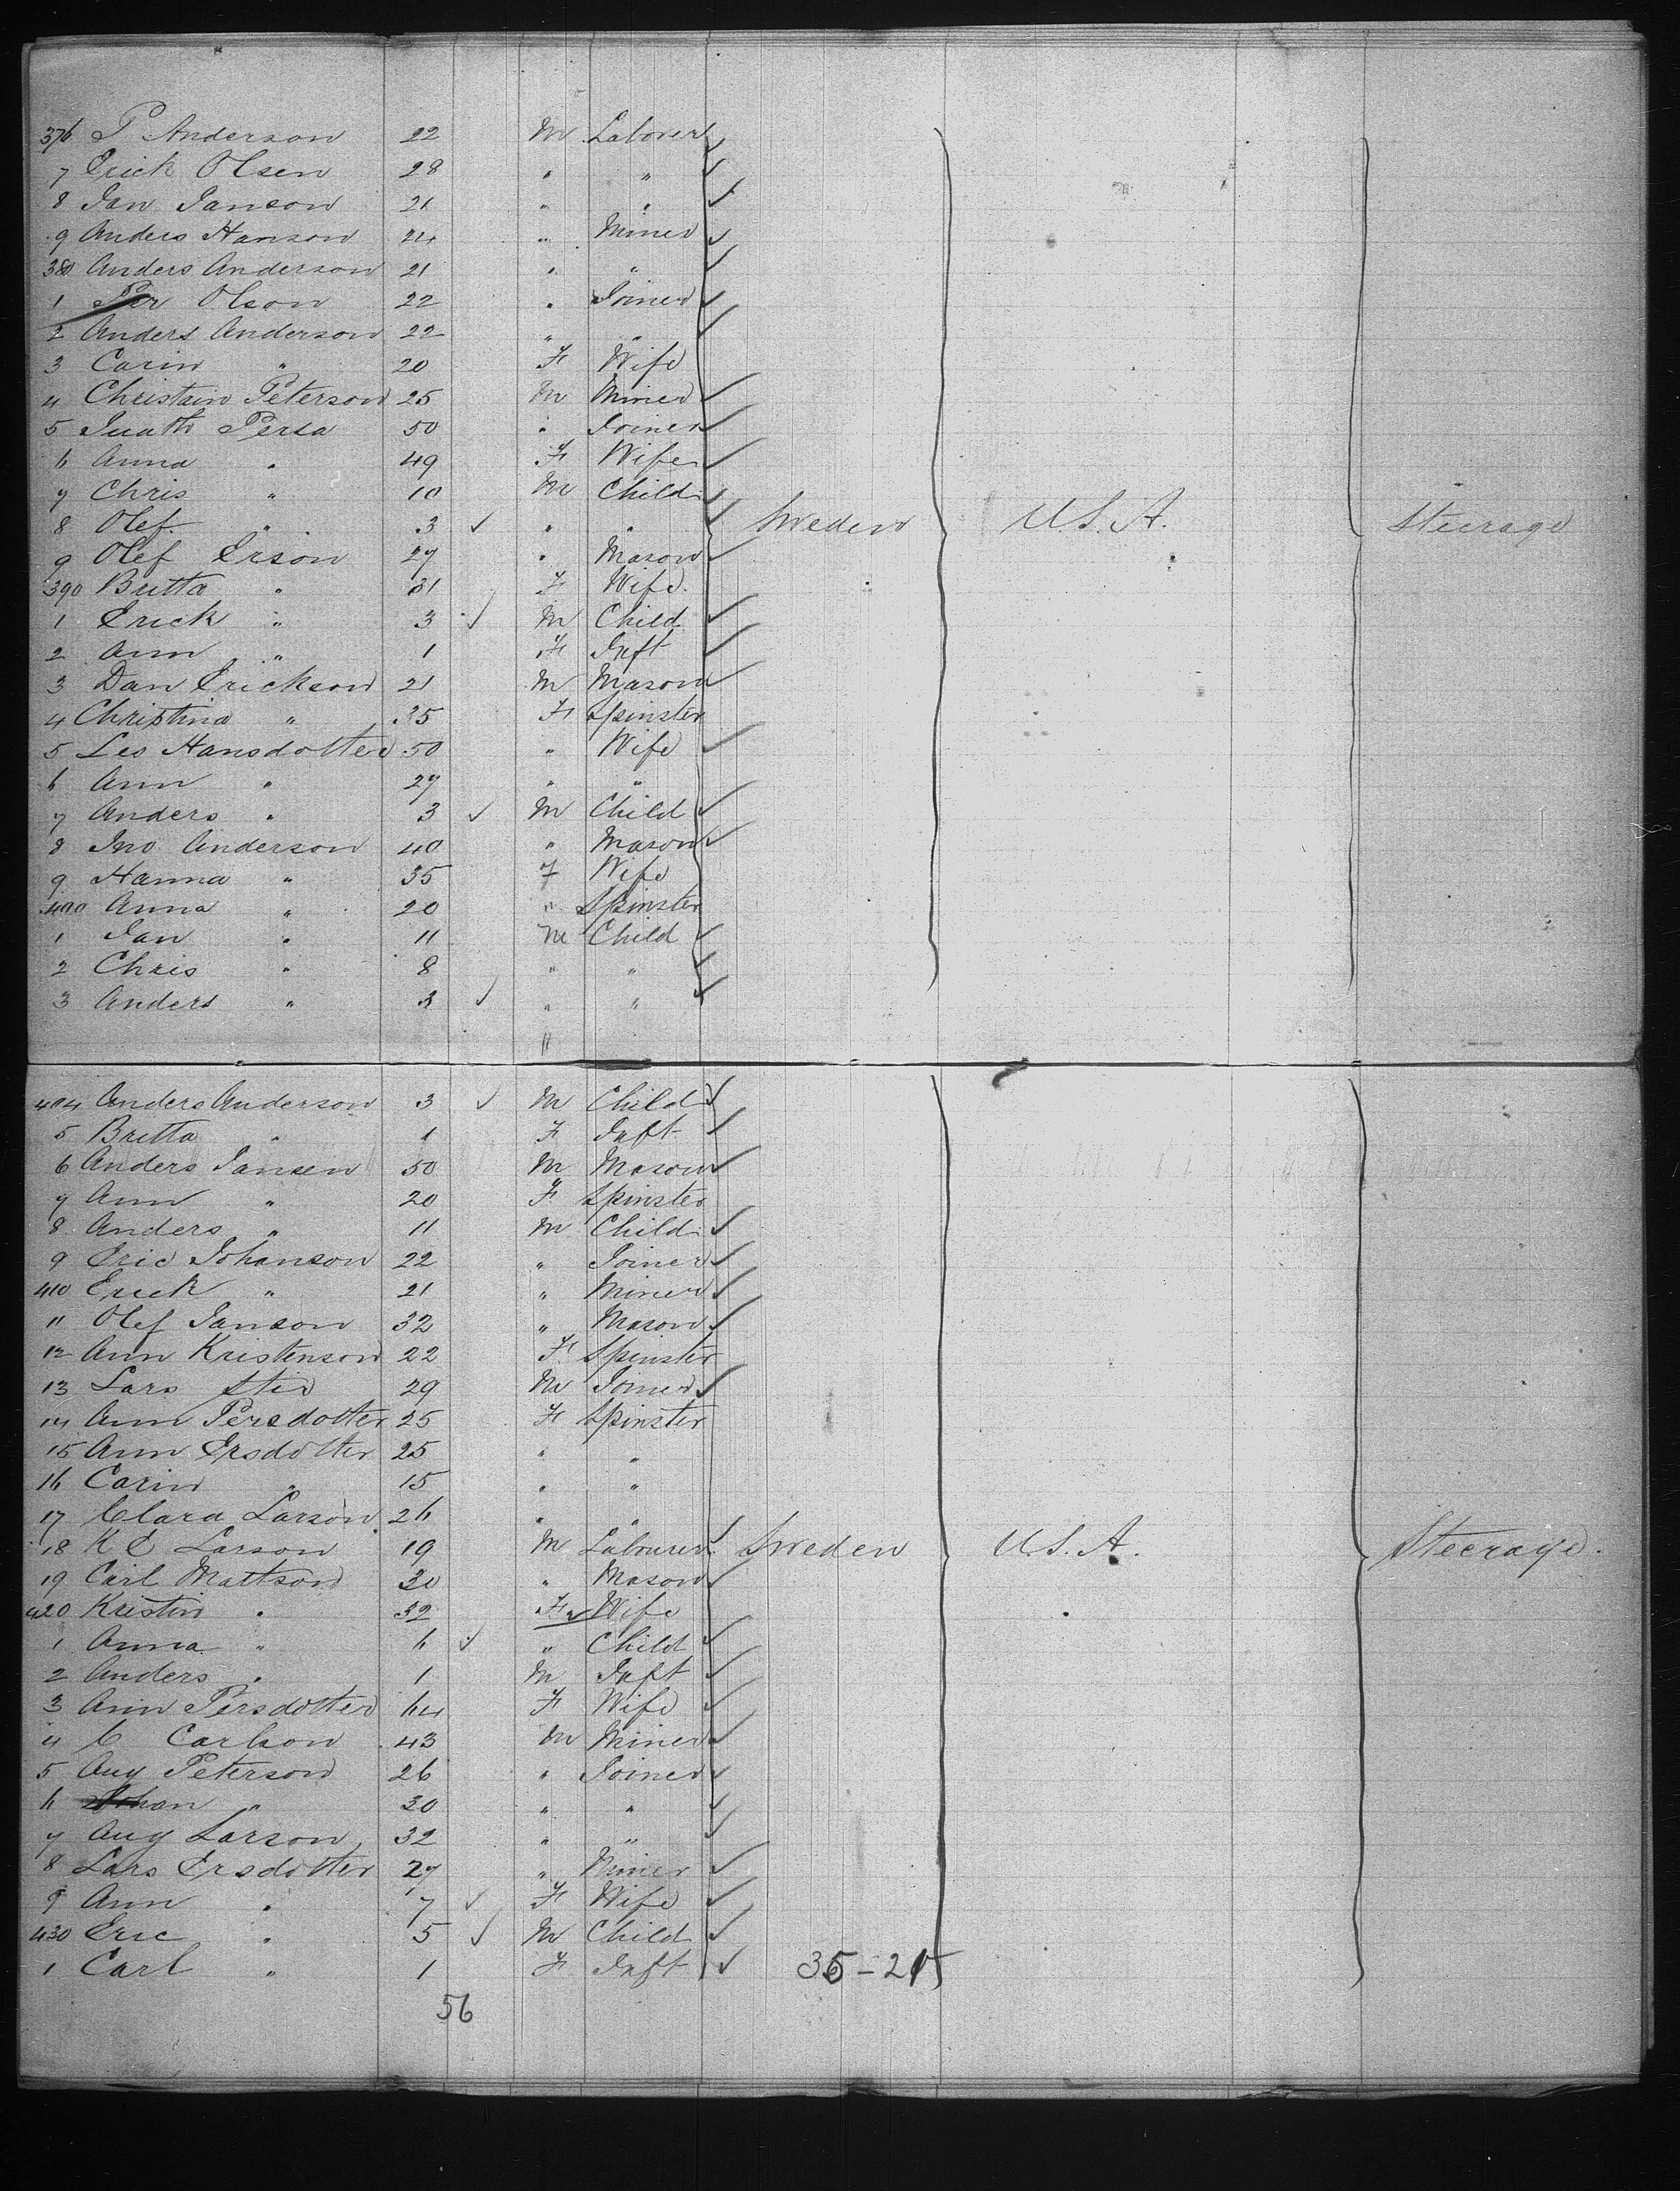 376 P Anderson 22 M Laborer
7 Erick Olsen 28 " "
8 Jan Janson 21 " "
9 Anders Hanson 24 " Miner
380 Anders Anderson 21 " "
1 Per Olson 22 " Joiner
2 Anders Anderson 22 " "
3 Carin " 20 F Wife
4 Christain Peterson 25 M Miner
5 Persa 50 " Joiner
6 Anna " 49 F Wife
7 Chris " 10 M Child
8 Olef " 3 ✓ " " Sweden U.S.A. Steerage
9 Olef Erson 27 " Mason
390 Britta " 31 F Wife
1 Erick " 3 ✓ M Child
2 Ann " 1 F Inft
3 Dan Erickson 21 M Mason
4 Christina " 35 F Spinster
5 Les Hansdotter 50 " Wife
6 Ann " 27 " "
7 Anders " 3 ✓ M Child
8 Jno Anderson 40 " Mason
9 Hanna " 35 F Wife
400 Anna " 20 " Spinster
1 Jan " 11 M Child
2 Chris " 8 " "
3 Anders " 3 ✓ " "
"
404 Anders Anderson 3 ✓ M Child
5 Britta " 1 F Inft
6 Anders Jansen 50 M Mason
7 Ann " 20 F Spinster
8 Anders " 11 M Child
9 Eric Johanson 22 " Joiner
410 Erick " 21 " Miner
11 Olef Janson 32 " Mason
12 Ann Kristenson 22 F Spinster
13 Lars 29 M Joiner
14 Ann Persdotter 25 F Spinster
15 Ann Ersdotter 25 " "
16 Carin " 15 " "
17 Clara Larson 26 " "
18 K E Larson 19 M Labourer Sweden U.S.A. Steerage.
19 Carl Mattson 30 " Mason
420 Kristin " 32 F Wife
1 Anna " 6 ✓ " Child
2 Anders " 1 M Inft
3 Ann Persdotter 64 F Wife
4 C Carlson 43 M Miner
5 Aug Peterson 26 " Joiner
6 Johan " 30 " "
7 Aug Larson 32 " "
8 Lars Ersdotter 27 " Miner
9 Ann " 7 ✓ F Wife
430 Eric " 5 ✓ M Child
1 Carl " 1 F Inft 35-21
56